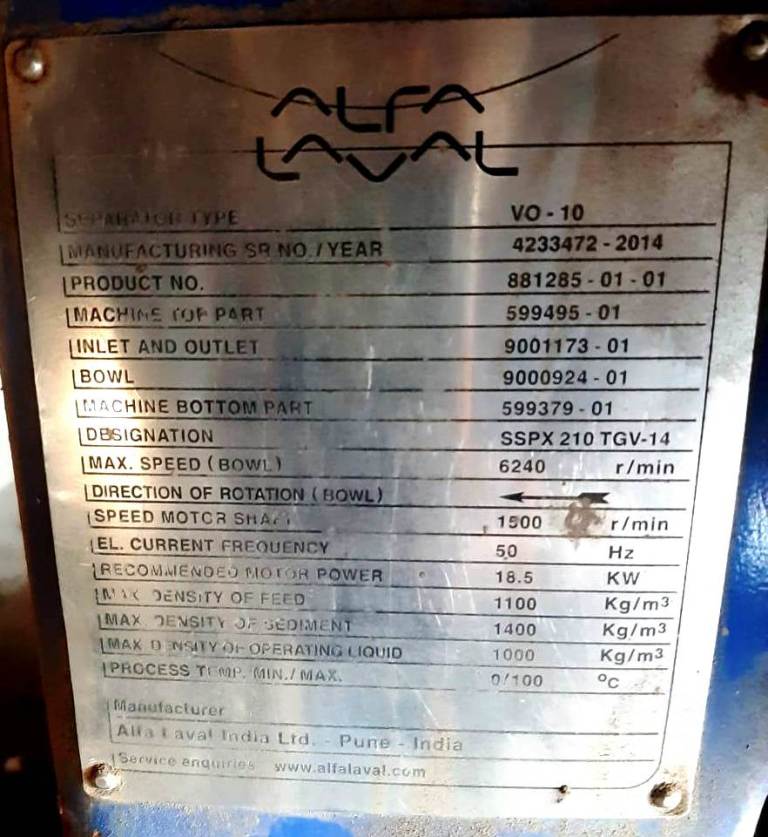 ALFA
LAVAL
SEPARATOR TYPE VO - 10
MANUFACTURING SR NO. / YEAR 4233472 - 2014
PRODUCT NO. 881285 - 01 - 01
MACHINE TOP PART 599495 - 01
INLET AND OUTLET 9001173 - 01
BOWL 9000924 - 01
MACHINE BOTTOM PART 599379 - 01
DESIGNATION SSPX 210 TGV-14
MAX. SPEED ( BOWL ) 6240 r/min
DIRECTION OF ROTATION ( BOWL )
SPEED MOTOR SHAFT 1500 r/min
EL. CURRENT FREQUENCY 50 Hz
RECOMMENDED MOTOR POWER 18.5 KW
MAX DENSITY OF FEED 1100 Kg/m³
MAX. DENSITY OF SEDIMENT 1400 Kg/m³
MAX DENSITY OF OPERATING LIQUID 1000 Kg/m³
PROCESS TEMP. MIN. / MAX. 0/100 °C
Manufacturer
Alfa Laval India Ltd. - Pune - India
Service enquiries www.alfalaval.com